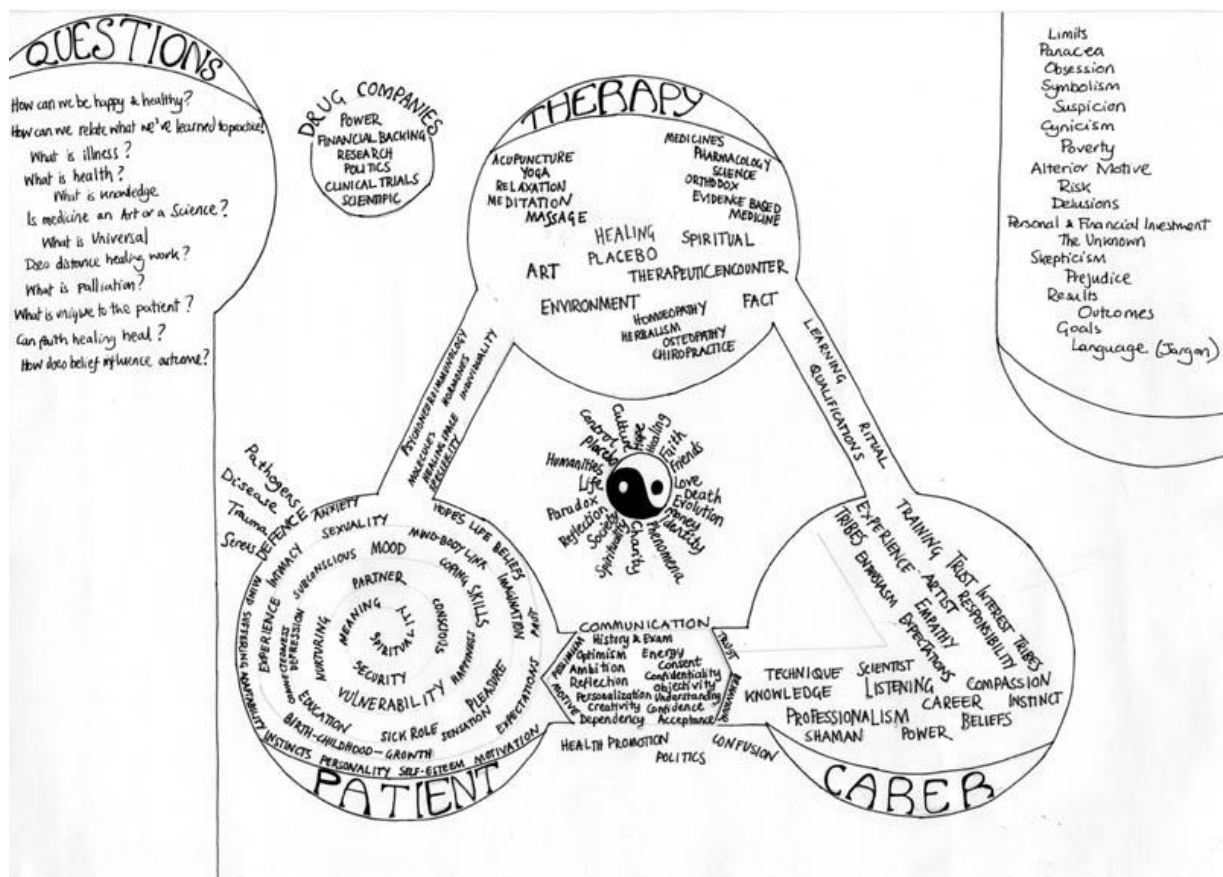 QUESTIONS
How can we be happy & healthy?
How can we relate what we've learned to practice?
What is illness?
What is health?
What is knowledge
Is medicine an Art or a Science?
What is Universal
Does distance healing work?
What is palliation?
What is unique to the patient?
Can faith healing heal?
How does belief influence outcome?
DRUG COMPANIES
POWER
FINANCIAL BACKING
RESEARCH
POLITICS
CLINICAL TRIALS
SCIENTIFIC
THERAPY
ACUPUNCTURE
YOGA
RELAXATION
MEDITATION
MASSAGE
MEDICINES
PHARMACOLOGY
SCIENCE
ORTHODOX
EVIDENCE BASED
MEDICINE
HEALING
PLACEBO
SPIRITUAL
ART
THERAPEUTIC ENCOUNTER
ENVIRONMENT
FACT
HOMOEOPATHY
HERBALISM
OSTEOPATHY
CHIROPRACTICE
Limits
Panacea
Obsession
Symbolism
Suspicion
Cynicism
Poverty
Alterior Motive
Risk
Delusions
Personal & Financial Investment
The Unknown
Skepticism
Prejudice
Results
Outcomes
Goals
Language (Jargon)
PSYCHONEUROIMMUNOLOGY
HORMONES
INDIVIDUALITY
MOLECULES
HEALING SPACE
SPECIFICITY
LEARNING
RITUAL
QUALIFICATIONS
TRAINING
Culture
Hope
Healing
Faith
Friends
Love
Death
Evolution
Money
Identity
Phenomena
Charity
Spirituality
Society
Reflection
Paradox
Life
Humanities
Placebo
Control
Pathogens
Disease
Trauma
Stress
DEFENCE
ANXIETY
SEXUALITY
HOPES
LIFE
BELIEFS
INTIMACY
SUBCONSCIOUS
MOOD
MIND-BODY LINK
COPING
SKILLS
IMAGINATION
PARTNER
MEANING
SPIRITUALITY
CONSCIOUS
NURTURING
SECURITY
HAPPINESS
VULNERABILITY
PLEASURE
EXPERIENCE
CONNECTEDNESS
DEPRESSION
MIND
SUFFERING
ADAPTABILITY
INSTINCTS
EDUCATION
SICK ROLE
SENSATION
EXPECTATIONS
BIRTH-CHILDHOOD-GROWTH
PERSONALITY
SELF-ESTEEM
MOTIVATION
PATIENT
COMMUNICATION
History & Exam
Optimism
Energy
Ambition
Consent
Reflection
Confidentiality
Objectivity
Personalization
Understanding
Creativity
Confidence
Dependency
Acceptance
MOTIVE
TRUST
HEALTH PROMOTION
POLITICS
CONFUSION
EXPERIENCE
TRIBES
ENTHUSIASM
ARTIST
EMPATHY
EXPECTATIONS
TRUST
INTEREST
RESPONSIBILITY
TRIBES
TECHNIQUE
SCIENTIST
COMPASSION
KNOWLEDGE
LISTENING
INSTINCT
CAREER
PROFESSIONALISM
BELIEFS
SHAMAN
POWER
CARER